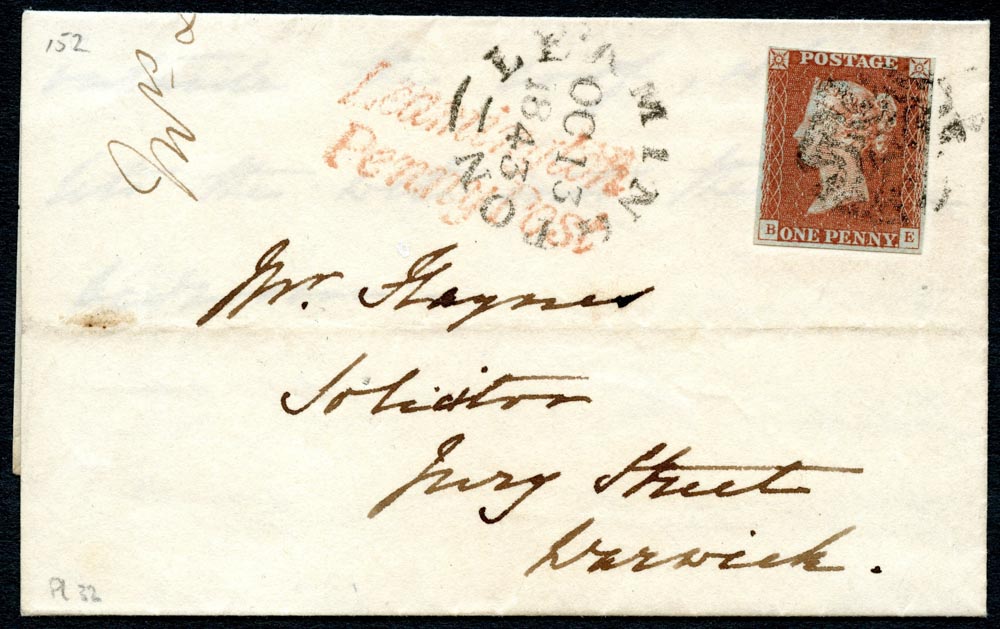 152
Leamington
Penny Post
LEAMINGTON
OC 13
1843
POSTAGE
B ONE PENNY E
Mr. Haynes
Solicitor
Jury Street
Warwick.
Pl 32